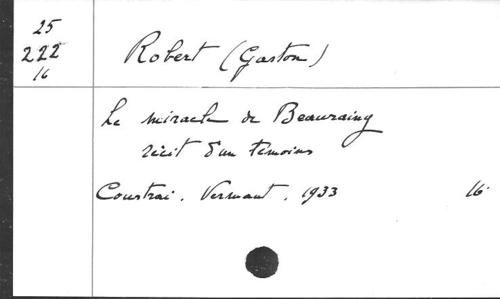 25
222
16
Robert (Gaston)
Le miracle de Beauraing
récit d'un témoins
Courtrai. Vermaut. 1933 16.